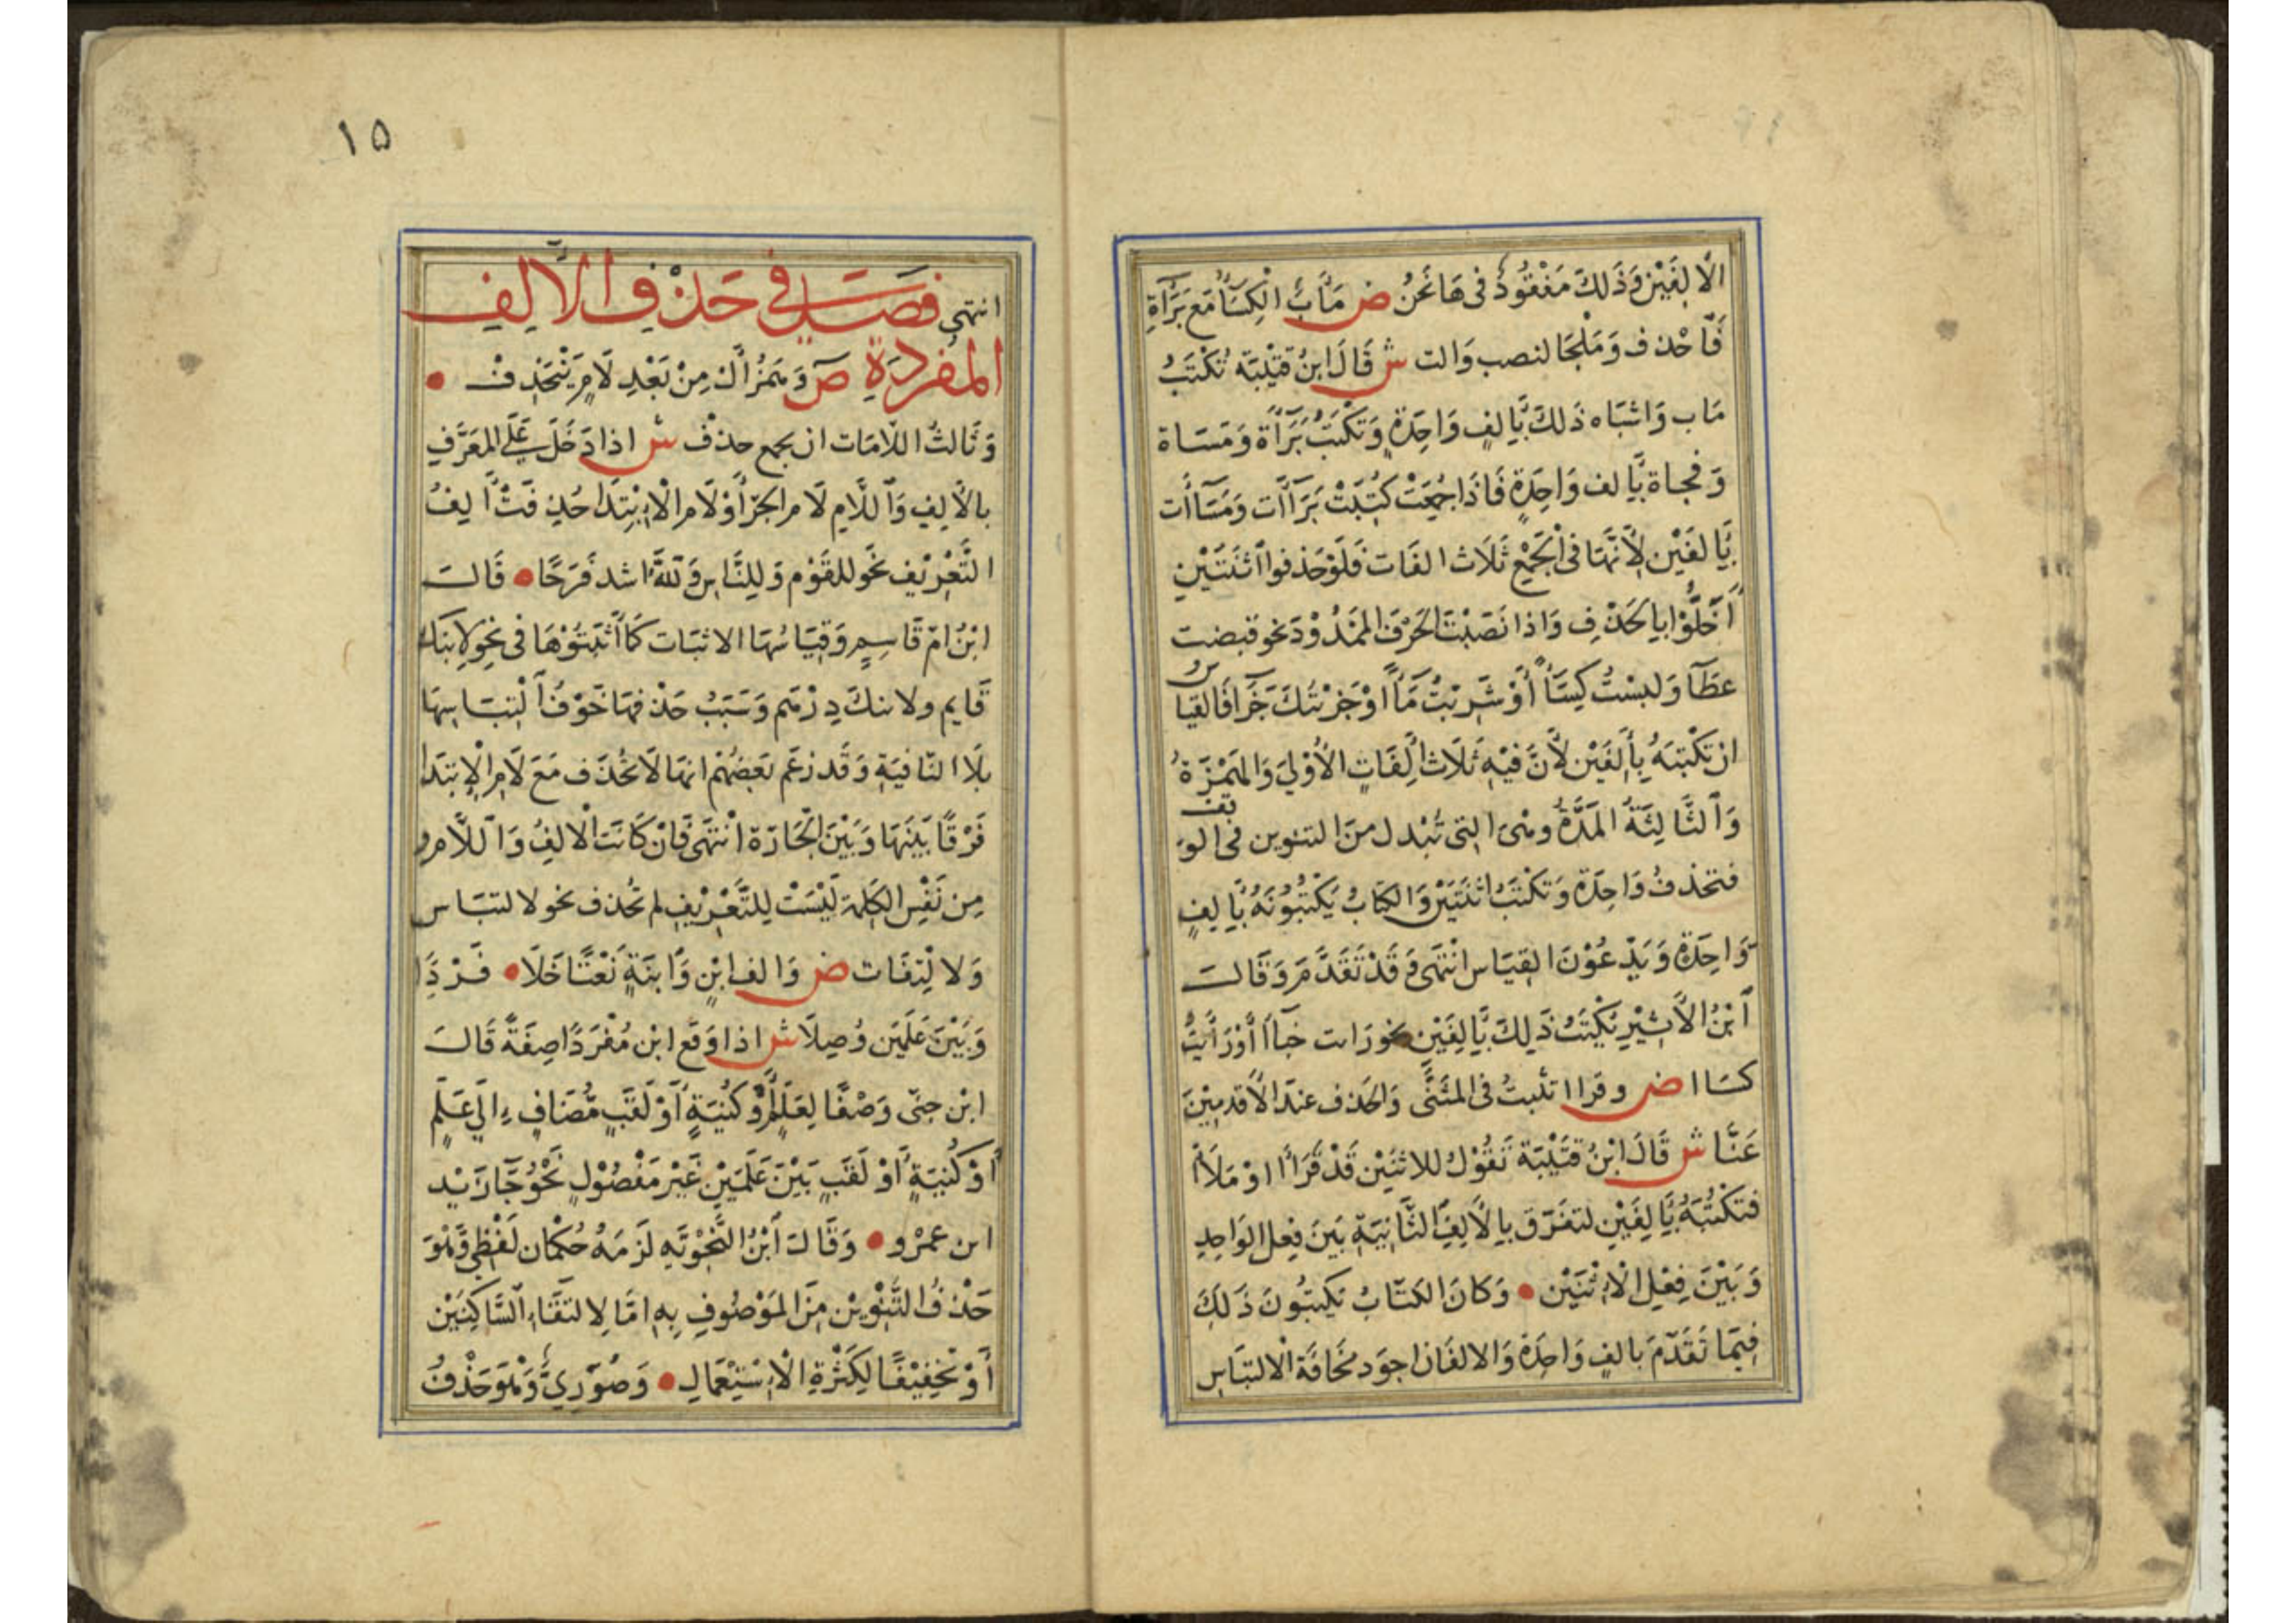 الْأَلِفَيْنِ وَذَلِكَ مَفْقُودٌ فِى هَا نَحْنُ ص مَآبُ الْكِسَا مَعَ بَرَآةِ
فَاحْذف وَمَلْجَا لنصب وَالت ش قَالَ ابنُ قتَيْبَة تُكْتَبُ
مَاب وَاشْبَاه ذَلِكَ بِأَلِفٍ وَاحِدَةٍ وَتَكْتبُ بَرَآءة وَمَسَاة
وَفجاة بِأَلف وَاحِدَةٍ فَاذَا جُمِعَتْ كُتِبَتْ بَرَآات وَمَسَاأت
بِأَلفَيْن لِأَنَّهَا فى الْجَمِيْعِ ثَلَاث الفَات فَلَوْحَذفوا اثنَتَيْنِ
أَخَلُّوْا بِالحَذْفِ وَاذا نَصَبْتَ الحَرْفَ المَمْدُوْدَ نحو قبضت
عطَآ وَلبسْتُ كِسَاً أَوْ شَرِبْتُ مَاً اوْجَزْتُكَ جَزَا فَالقيا س
ان تَكْتبَهُ بِأَلِفَيْنِ لِأَنَّ فيْهِ ثَلَاث أَلِفَاتٍ الأُوْلىَ وَالهَمْزَةُ
وَالثَّالِثَةُ المَدَّةُ وهىَ التى تُبْدل منَ التنوين فى الوَ قف
فتحذفُ وَاحِدَة وَتكْتبُ اثنَتَيْن وَالكتَابُ يَكْتُبُوْنَهُ بِأَلِفٍ
وَاحِدَةٍ وَيَدْعُوْنَ القِيَاس انْتهَى وَقَدْ تَقَدَّمَ وَقَالَ
ابْنُ الأَثِيْرِ يُكْتَبُ ذَلِكَ بِأَلِفَيْنِ نحو رَات خبَاً أَوْ رَأَيْتُ
كسَاا ص وقراا تثبتُ فى المثَنَّى وَالحَذف عندَ الأَقدمِيْنَ
عَنَّا ش قَالَ ابْنُ قتَيْبَة تَقُوْلُ للاثنَيْن قَدْ قَرَأَا اوْ مَلَأَا
فتكْتُبَهُ بِأَلِفَيْنِ لتفَرّق بِالأَلِفِ الثَّانِيَةِ بَينَ فِعْل الوَاحِدِ
وَبَيْنَ فِعْلِ الْاِثْنَيْن • وَكَانَ الكتّابُ يَكتبُونَ ذَلِكَ
فِيْمَا تَقَدّمَ بالفٍ وَاحِدَة وَالالفَان اجوَد مخَافَة الْالتبَاس
١٥
انتهى فصل فى حَذْفِ الأَلِفِ
المفردَةِ ص وَهَمْزُ أَلْ مِنْ بَعْدِ لَامٍ يَنْحَذِفْ •
وَثَالثُ اللَّامَات ان يجمع حذفْ ش اذا دَخَلَ عَلَى المعَرَّفِ
بالأَلِفِ وَاللَّامِ لَامر الجرّ أَوْ لَام الاِبْتِدَا حُذِفَتْ أَلِفُ
التَّعْرِيْفِ نحْو للقَوْم وَلِلنَّاسِ وَللَّهُ اشد فَرَحًا • قَالَ
ابْنُ امّ قَاسِمٍ وَقِيَاسُهَا الاثبَات كَمَا أَثْبَتُوْهَا فى نَحْوِ لِابنَك
قَايم ولابنكَ دِرْهَم وَسَبَبُ حَذْفهَا خَوْفُ الْتبَاسِهَا
بلَا النَّافيَةِ وَقَد زعَم بَعضُهُم انهَا لَا تُحْذف مَعَ لَامِ الْاِبتدَا
فَرْقًا بَيْنَهَا وَبَيْنَ الْجَارّة انْتهَى فَانْ كَانَت الْالِفُ وَاللَّام
مِن نَفْسِ الكَلِمَة لَيْسَتْ لِلتَّعْرِيْفِ لم تُحْذف نحو لالتبَاس
وَلا لْتِفَات ص وَالف ابْنٍ وَابنَةٍ نَعْتًا خَلَا • فَرْدًا
وَبَيْنَ عَلَمَيْن وُصِلَا ش اذا وَقَع ابْن مُفْرَدًا صِفَةً قَالَ
ابْن جنّى وَصْفًا لِعَلَمٍ أَوْ كُنيَةٍ أَوْ لَقَبٍ مُّضَافٍ اِلَى عَلَمٍ
أَوْ كُنيَةٍ أَوْ لَقَبٍ بَيْنَ عَلَمَيْنِ غَيْر مَفْصُوْلٍ نَحْوُ جَآ زَيْد
ابن عمْرو • وَقَالَ ابْنُ النَّحْوِيَّهِ لَزمَهُ حُكْمَان لَفْظِى وَّهُوَ
حَذْفُ التَّنْوِيْن مِنَ المَوْصُوْفِ بِهِ امَّا لِالتقَاءِ السَّاكِنَيْن
أَوْ تَخْفِيْفًا لِكَثْرَةِ الْاِسْتِعْمَالِ • وَصُوْرِىٌّ وَهُوَ حَذْفُ